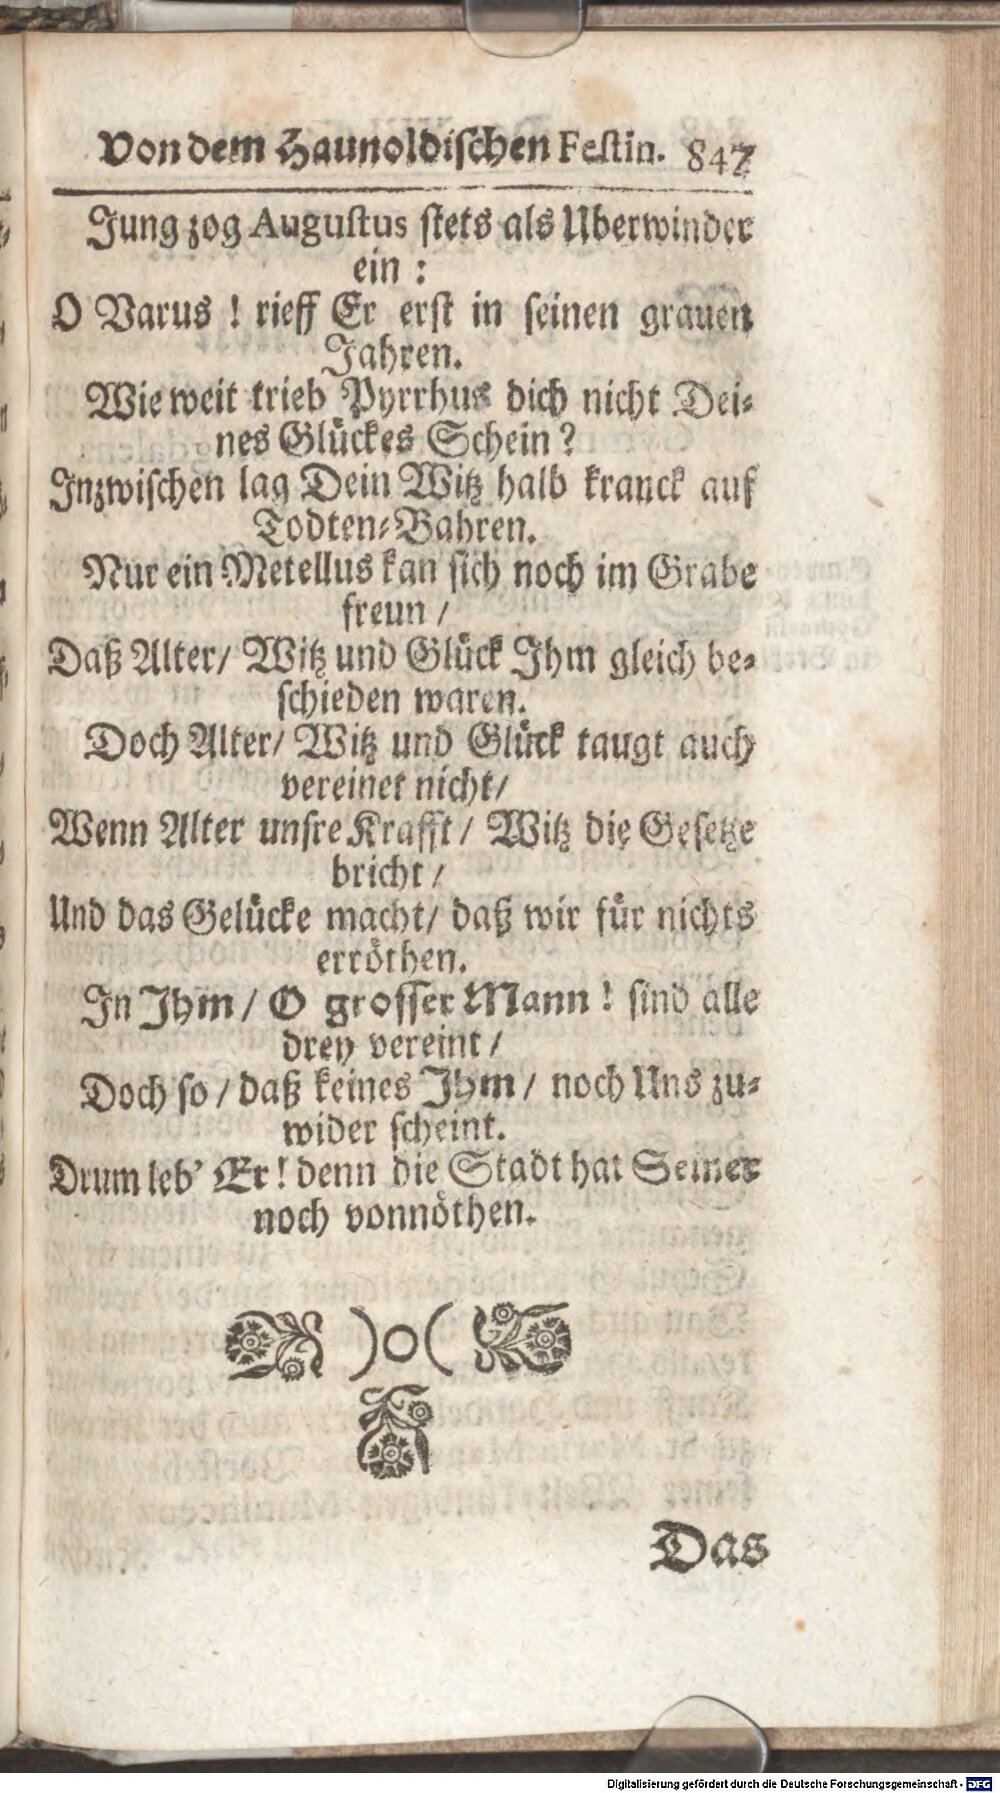 Von dem Haunoldischen Festin. 847
Jung zog Augustus stets als Uberwinder
ein :
O Varus ! rieff Er erst in seinen grauen
Jahren.
Wie weit trieb Pyrrhus dich nicht Dei-
nes Glückes Schein ?
Inzwischen lag Dein Witz halb kranck auf
Todten-Bahren.
Nur ein Metellus kan sich noch im Grabe
freun /
Daß Alter/ Witz und Glück Ihm gleich be-
schieden waren.
Doch Alter/ Witz und Glück taugt auch
vereinet nicht/
Wenn Alter unsre Krafft/ Witz die Gesetze
bricht /
Und das Gelücke macht/ daß wir für nichts
erröthen.
In Ihm / O grosser Mann ! sind alle
drey vereint /
Doch so / daß keines Ihm / noch Uns zu-
wider scheint.
Drum leb' Er! denn die Stadt hat Seiner
noch vonnöthen.
)o(
Das
Digitalisierung gefördert durch die Deutsche Forschungsgemeinschaft - DFG